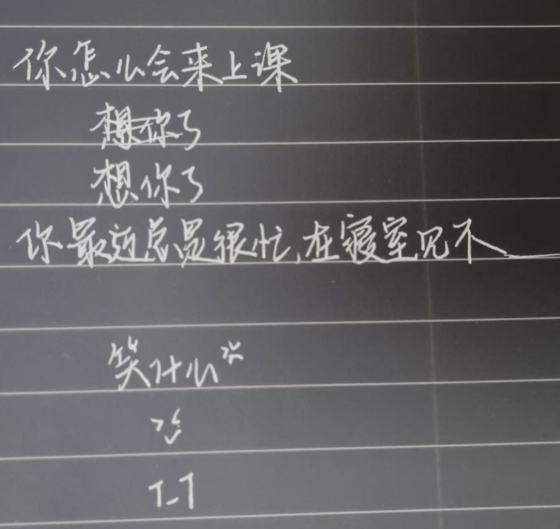 你怎么会来上课
想你了
想你了
你最近总是很忙,在寝室见不
笑什么
T_T